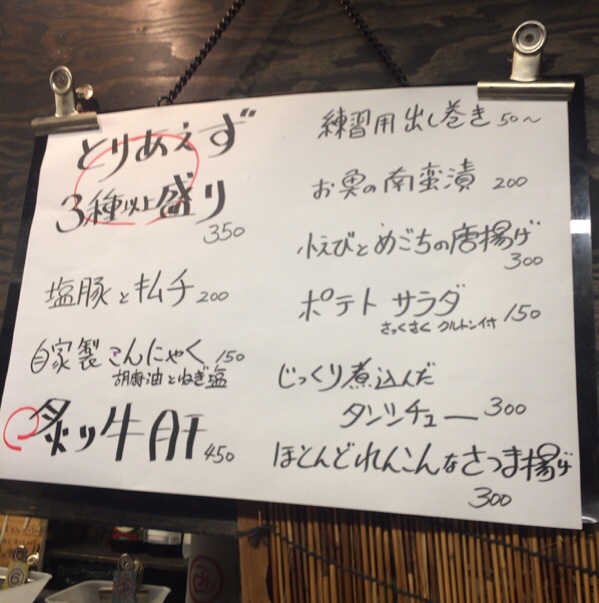 とりあえず
3種以上盛り
350
塩豚とキムチ 200
自家製こんにゃく 150
胡麻油とねぎ塩
炙り牛肝 450
練習用出し巻き 50〜
お魚の南蛮漬 200
小えびとめごちの唐揚げ
300
ポテトサラダ 150
さっくさく クルトン付
じっくり煮込んだ
タンシチュー 300
ほとんどれんこんなさつま揚げ
300